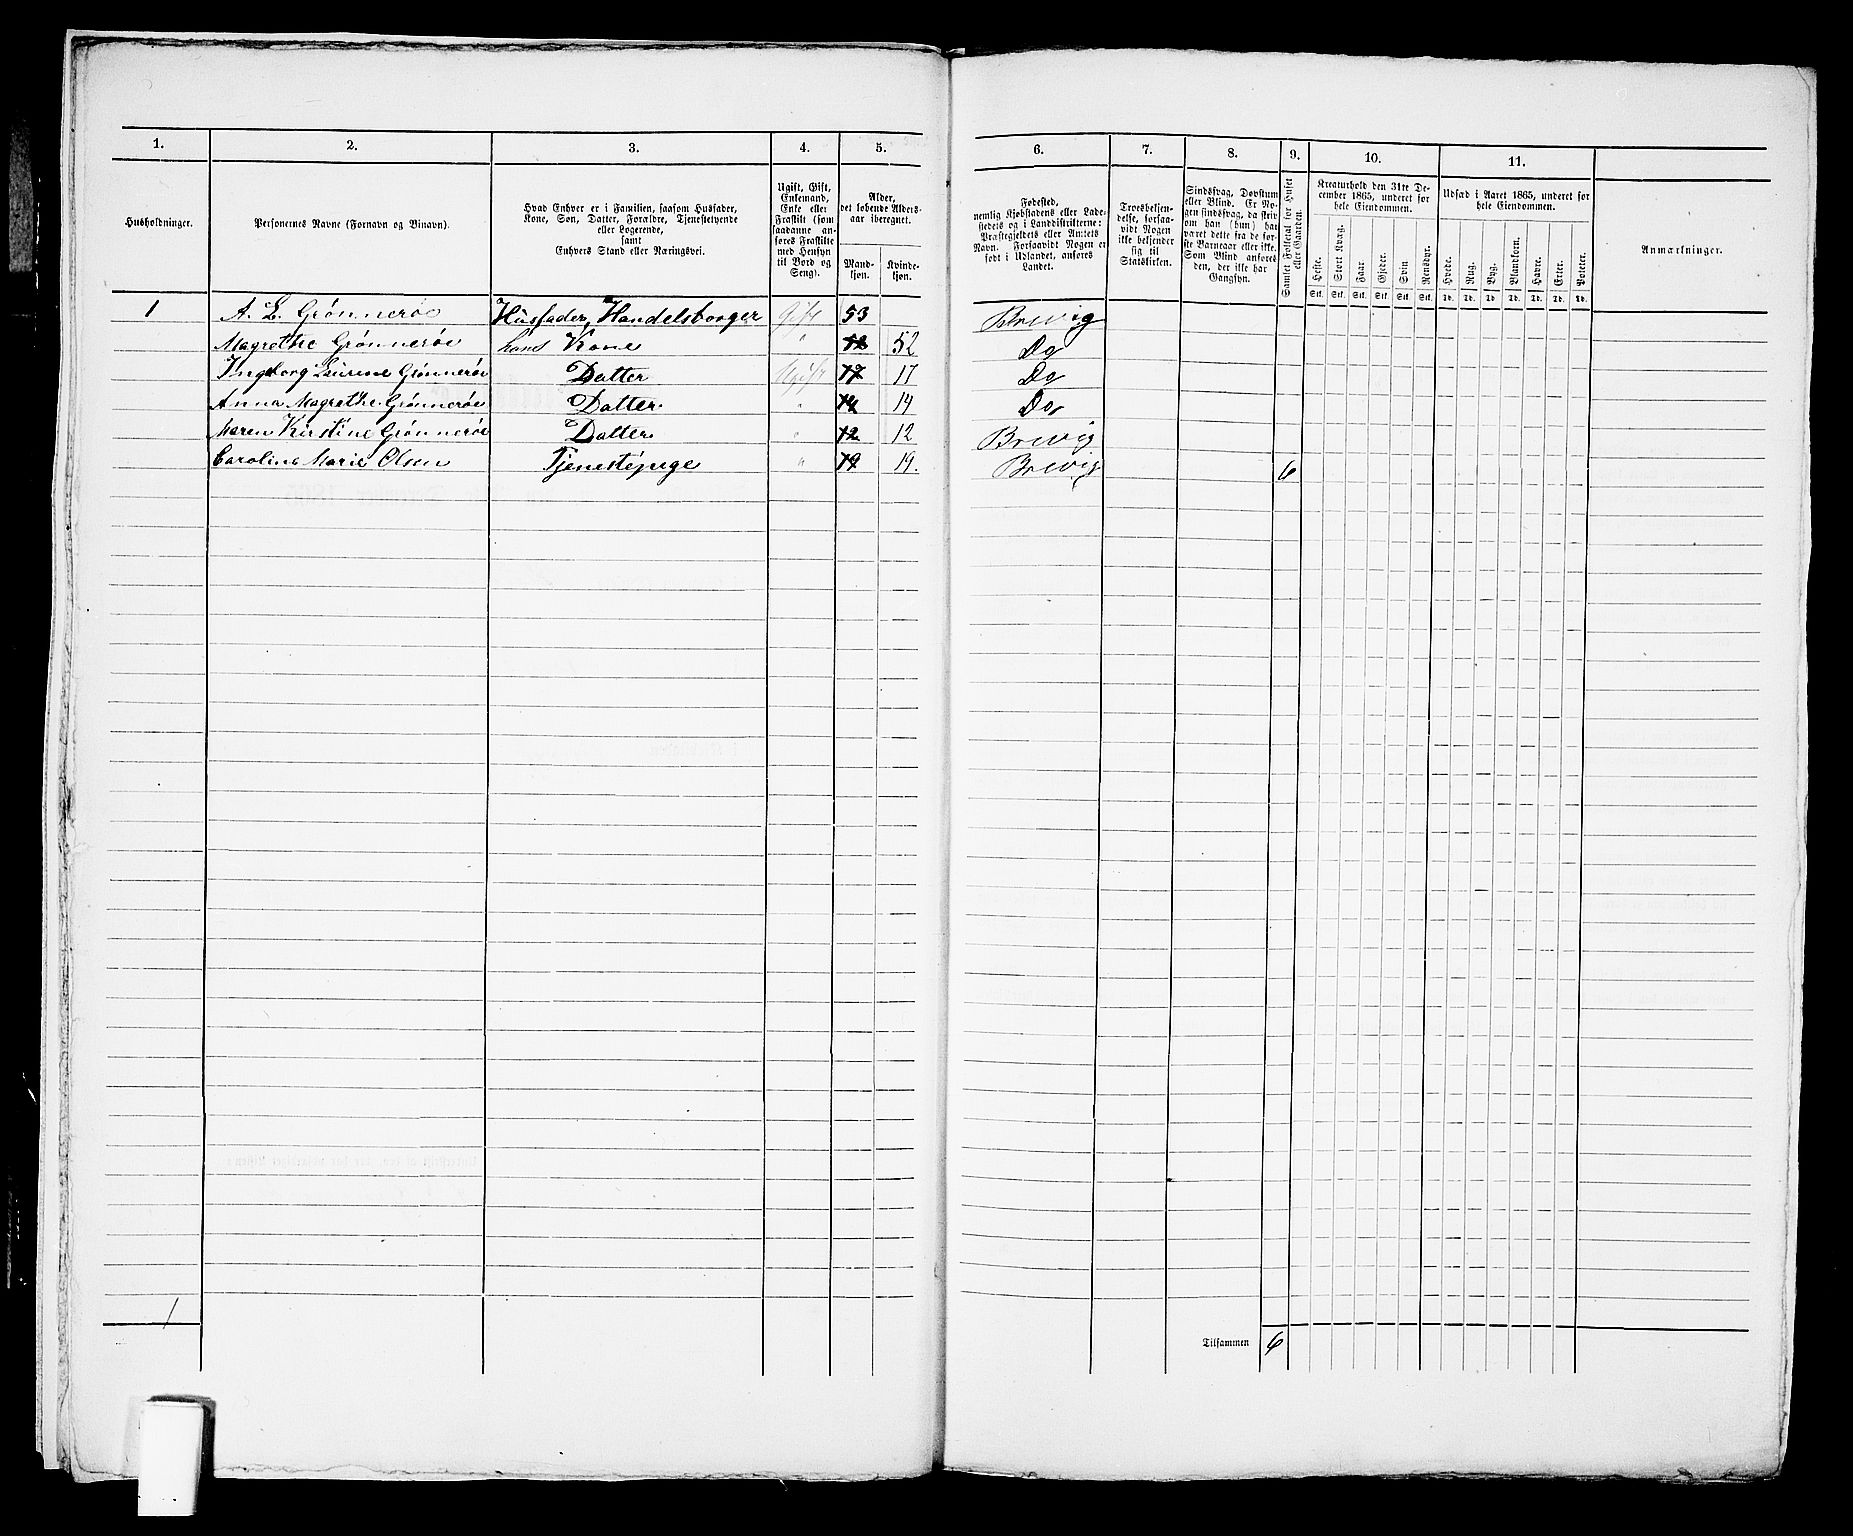 1. 2. 3. 4. 5. 6. 7. 8. 9. 10. 11.
Husholdninger.
Personernes Navne (Fornavn og Binavn).
Hvad Enhver er i Familien, saasom Husfader,
Kone, Søn, Datter, Forældre, Tjenestetyende
eller Logerende,
samt
Enhvers Stand eller Næringsvei.
Ugift, Gift,
Enkemand,
Enke eller
Fraskilt (som
saadanne an-
føres Fraskilte
med Hensyn
til Bord og
Seng).
Alder,
det løbende Alders-
aar iberegnet.
Mand-
kjøn.
Kvinde-
kjøn.
Fødested,
nemlig Kjøbstadens eller Lade-
stedets og i Landdistrikterne:
Præstegjeldets eller Amtets
Navn. Forsaavidt Nogen er
født i Udlandet, anføres
Landet.
Troesbekjen-
delse, forsaa-
vidt Nogen
ikke bekjender
sig til
Statskirken.
Sindssvag, Døvstum
eller Blind. Er No-
gen sindssvag, da skriv
om han (hun) har
været dette fra de før-
ste Barneaar eller ikke.
Som Blind anføres
den, der ikke har
Gangsyn.
Samlet Folketal for Huset
eller Gaarden.
Kreaturhold den 31te De-
cember 1865, underet for
hele Eiendommen.
Heste. Stort Kvæg. Faar. Gjeder. Svin Rensdyr.
Stk. Stk. Stk. Stk. Stk. Stk.
Udsæd i Aaret 1865, underet for
hele Eiendommen.
Hvede. Rug. Byg. Blandkorn. Havre. Erter. Poteter.
Td. Td. Td. Td. Td. Td. Td.
Anmærkninger.
1 A. L. Grønnerøe Husfader, Handelsborger Gift 53 Brevig
Magrethe Grønnerøe hans Kone " 52 Do
Ingeborg Laurine Grønnerøe Datter Ugift 17 17 Do
Anna Magrethe Grønnerøe Datter " 14 14 Do
Maren Kirstine Grønnerøe Datter " 12 12 Brevig
Caroline Marie Olsen Tjenestepige " 19 19. Brevig 6
1
Tilsammen 6